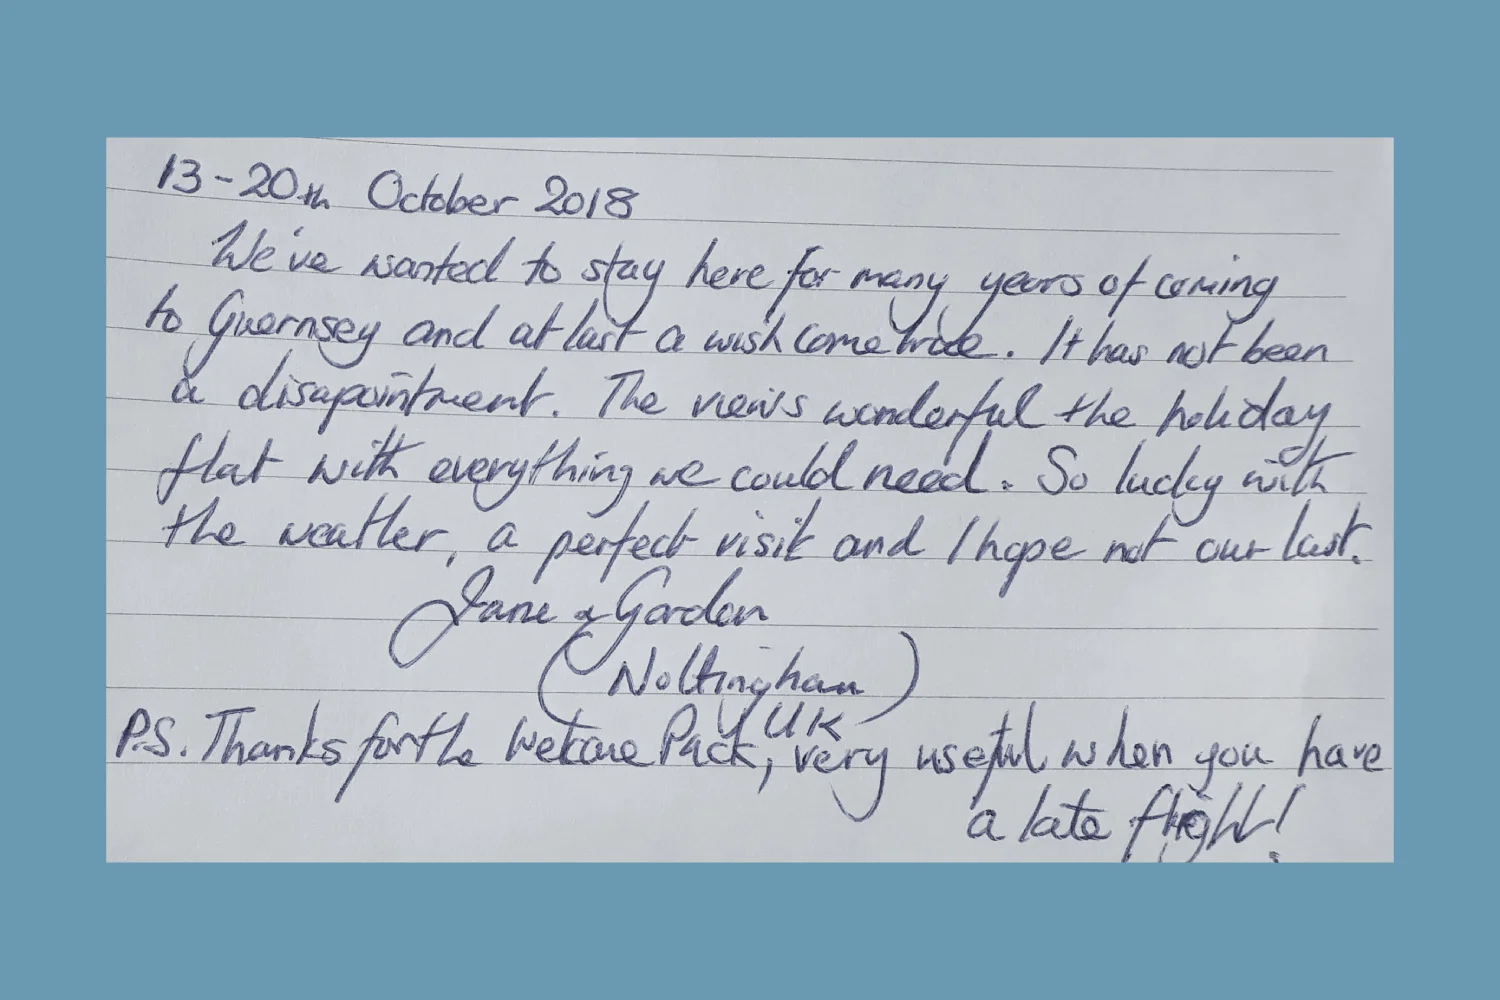 13-20th October 2018
We've wanted to stay here for many years of coming
to Guernsey and at last a wish come true. It has not been
a disapointment. The views wonderful the holiday
flat with everything we could need. So lucky with
the weather, a perfect visit and I hope not our last.
Jane & Gordon
(Nottingham)
UK
P.S. Thanks for the Welcome Pack, very useful when you have
a late flight!